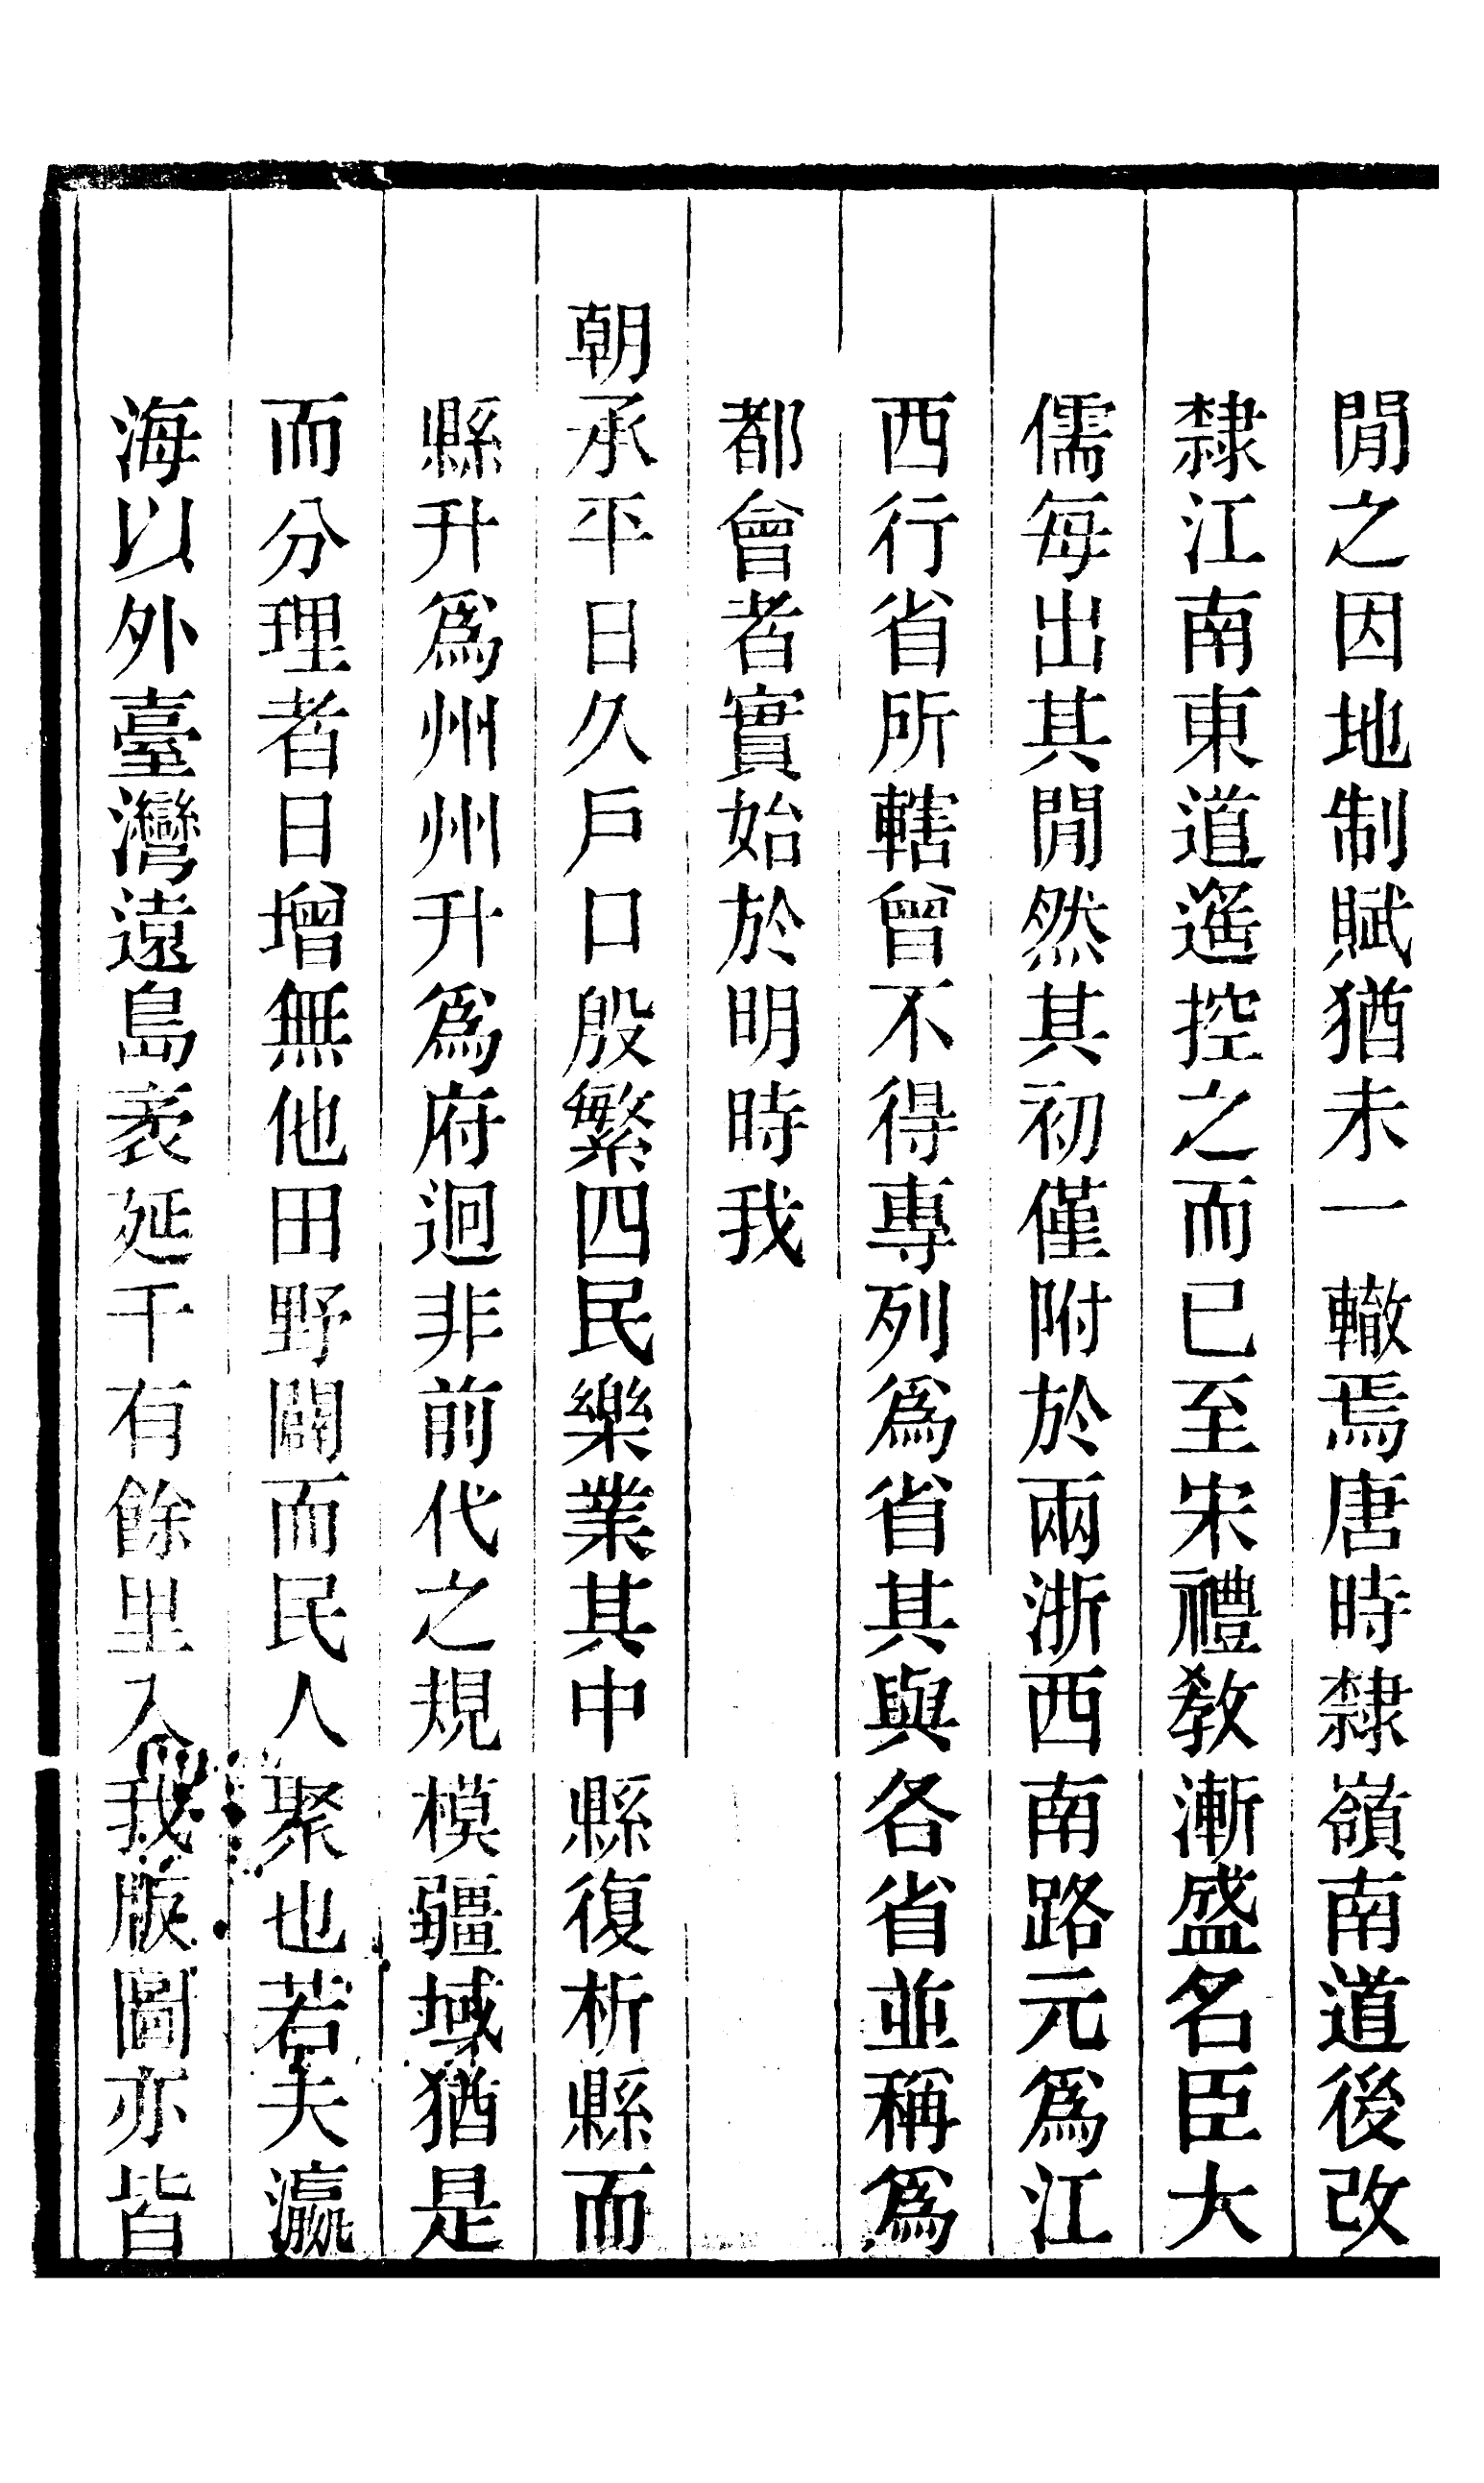 閒之因地制賦猶未一轍焉唐時隸嶺南道後改
隸江南東道遙控之而已至宋禮敎漸盛名臣大
儒每出其閒然其初僅附於兩浙西南路元爲江
西行省所轄曾不得專列爲省其與各省並稱爲
都會者實始於明時我
朝承平日久戶口殷繁四民樂業其中縣復析縣而
縣升爲州州升爲府迥非前代之規模疆域猶是
而分理者日增無他田野闢而民人聚也若夫瀛
海以外臺灣遠島袤延千有餘里入我版圖亦皆